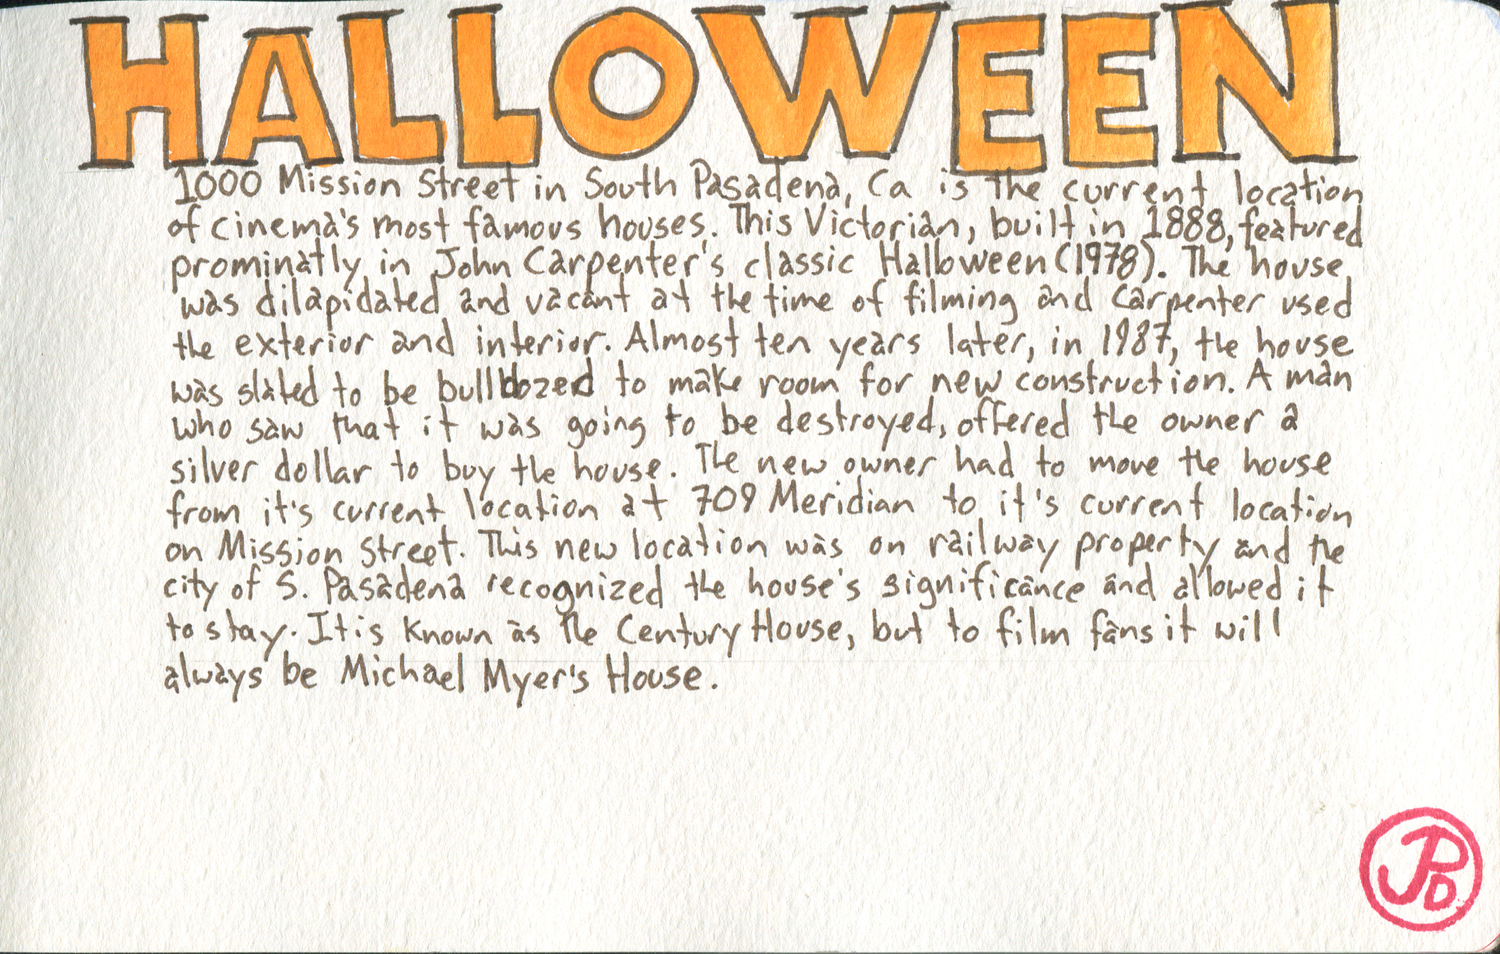 HALLOWEEN
1000 Mission Street in South Pasadena, Ca is the current location
of cinema's most famous houses. This Victorian, built in 1888, featured
prominatly in John Carpenter's classic Halloween (1978). The house
was dilapidated and vacant at the time of filming and Carpenter used
the exterior and interior. Almost ten years later, in 1987, the house
was slated to be bulldozed to make room for new construction. A man
who saw that it was going to be destroyed, offered the owner a
silver dollar to buy the house. The new owner had to move the house
from it's current location at 709 Meridian to it's current location
on Mission Street. This new location was on railway property and the
city of S. Pasadena recognized the house's significance and allowed it
to stay. It is known as the Century House, but to film fans it will
always be Michael Myer's House.
JPD